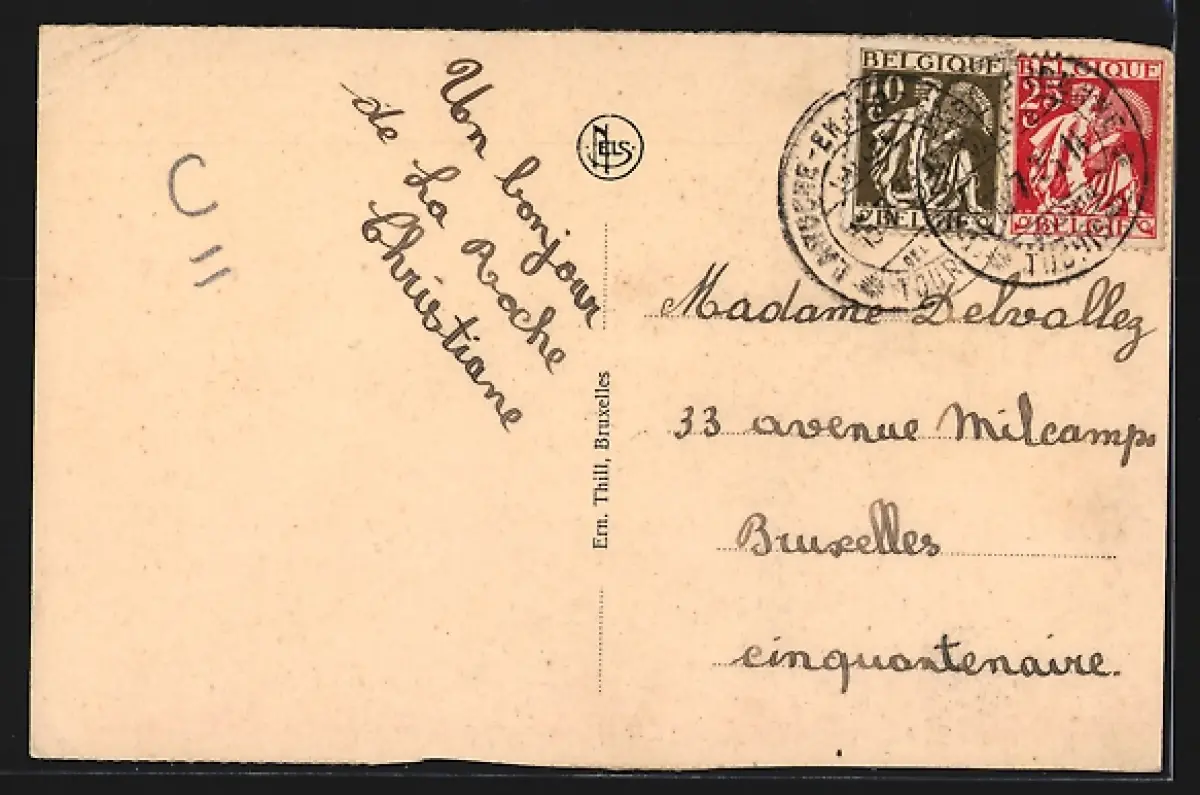 Un bonjour
de La Roche
Christiane
NELS
Ern. Thill, Bruxelles
BELGIQUE
10
BELGIE
BELGIQUE
25
BELGIE
LAROCHE-EN-
TOUR
TOURI
Madame Delvallez
33 avenue Milcamps
Bruxelles
cinquantenaire.